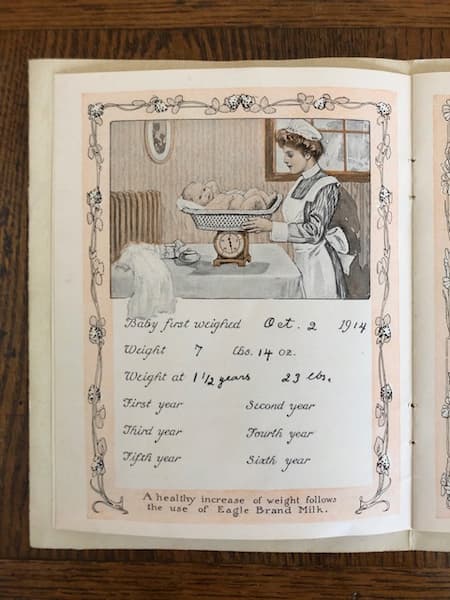 Baby first weighed Oct. 2 1914
Weight 7 lbs. 14 oz.
Weight at 1 1/2 years 23 lbs.
First year Second year
Third year Fourth year
Fifth year Sixth year
A healthy increase of weight follows
the use of Eagle Brand Milk.